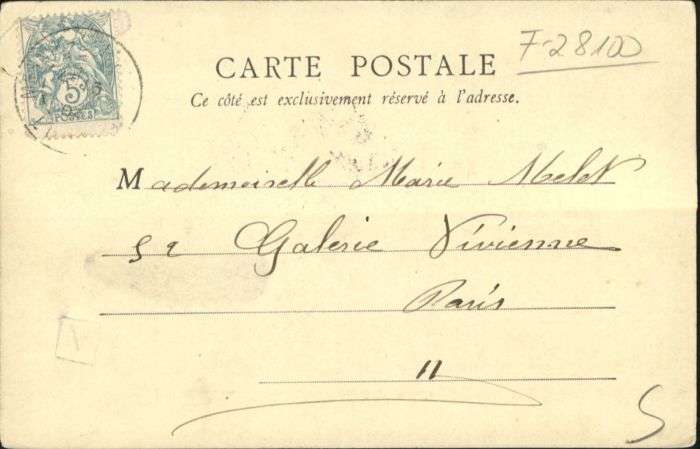 F-28100
5
POSTES
CARTE POSTALE
Ce côté est exclusivement réservé à l'adresse.
Mademoiselle Marie Melet
52 Galerie Vivienne
Paris
"